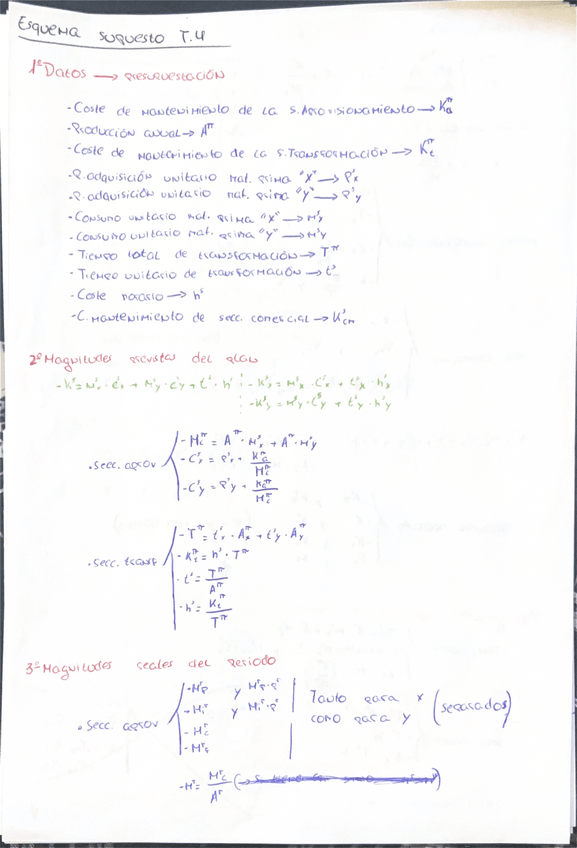 Esquema supuesto T.4
1º Datos → presupuestación
- Coste de mantenimiento de la S. Aprovisionamiento → K_a^π
- Producción anual → A^π
- Coste de mantenimiento de la S. Transformación → K_t^π
- P. adquisición unitario mat. prima "x" → P'x
- P. adquisición unitario mat. prima "y" → P'y
- Consumo unitario mat. prima "x" → M'x
- Consumo unitario mat. prima "y" → M'y
- Tiempo total de transformación → T^π
- Tiempo unitario de transformación → t'
- Coste horario → h'
- C. mantenimiento de secc. comercial → K'cm
2º Magnitudes previstas del plan
- K' = M'x · C'x + M'y · C'y + t' · h' - K'x = M'x · C'x + t'x · h'x
- K'y = M'y · C'y + t'y · h'y
• Secc. aprov
- M_c^π = A^π · M'x + A^π · M'y
- C'x = P'x + K_a^π / M_c^π
- C'y = P'y + K_a^π / M_c^π
• Secc. transf
- T^π = t'x · A_x^π + t'y · A_y^π
- K_t^π = h' · T^π
- t' = T^π / A^π
- h' = K_t^π / T^π
3º Magnitudes reales del periodo
• Secc. aprov
Tanto para x (separados)
como para y